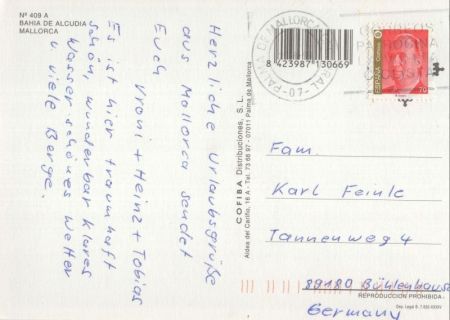 Nº 409 A
BAHIA DE ALCUDIA
MALLORCA
Herzliche Urlaubsgrüße
aus Mallorca sendet
Euch Vroni + Heinz + Tobias
Es ist hier traumhaft
schön, wunderbar klares
Wasser schönes Wetter
u viele Berge.
COFIBA Distribuciones, S. L.
Aldea del Cariño, 16 A - Tel. 73 66 97 - 07011 Palma de Mallorca
8 423987 130669
PALMA DE MALLORCA
-07-
CORREOS
PATROCINA
ESPAÑA
70
Fam.
Karl Feinle
Tannenweg 4
89180 Bühlenhausen
Germany
REPRODUCCION PROHIBIDA